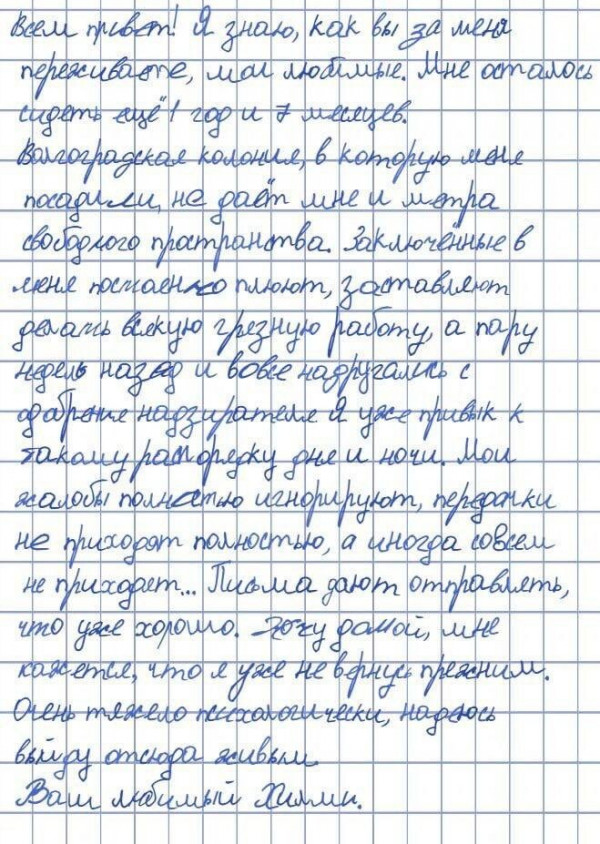 Всем привет! Я знаю, как вы за меня
переживаете, мои любимые. Мне осталось
сидеть ещё 1 год и 7 месяцев.
Волгоградская колония, в которую меня
посадили, не даёт мне и метра
свободного пространства. Заключённые в
меня постоенно плюют, заставляют
делать всякую грезную работу, а пару
недель назад и вовсе надругались с
одабрения надзирателя Я уже привык к
такому распорядку дня и ночи. Мои
жалобы полностью игнорируют, передачки
не приходят полностью, а иногда совсем
не приходят... Письма дают отправлять,
что уже хорошо. Хочу домой, мне
кажется, что я уже не вернусь прежним.
Очень тяжело психологически, надеюсь
выйду отсюда живым
Ваш любимый Хилми.